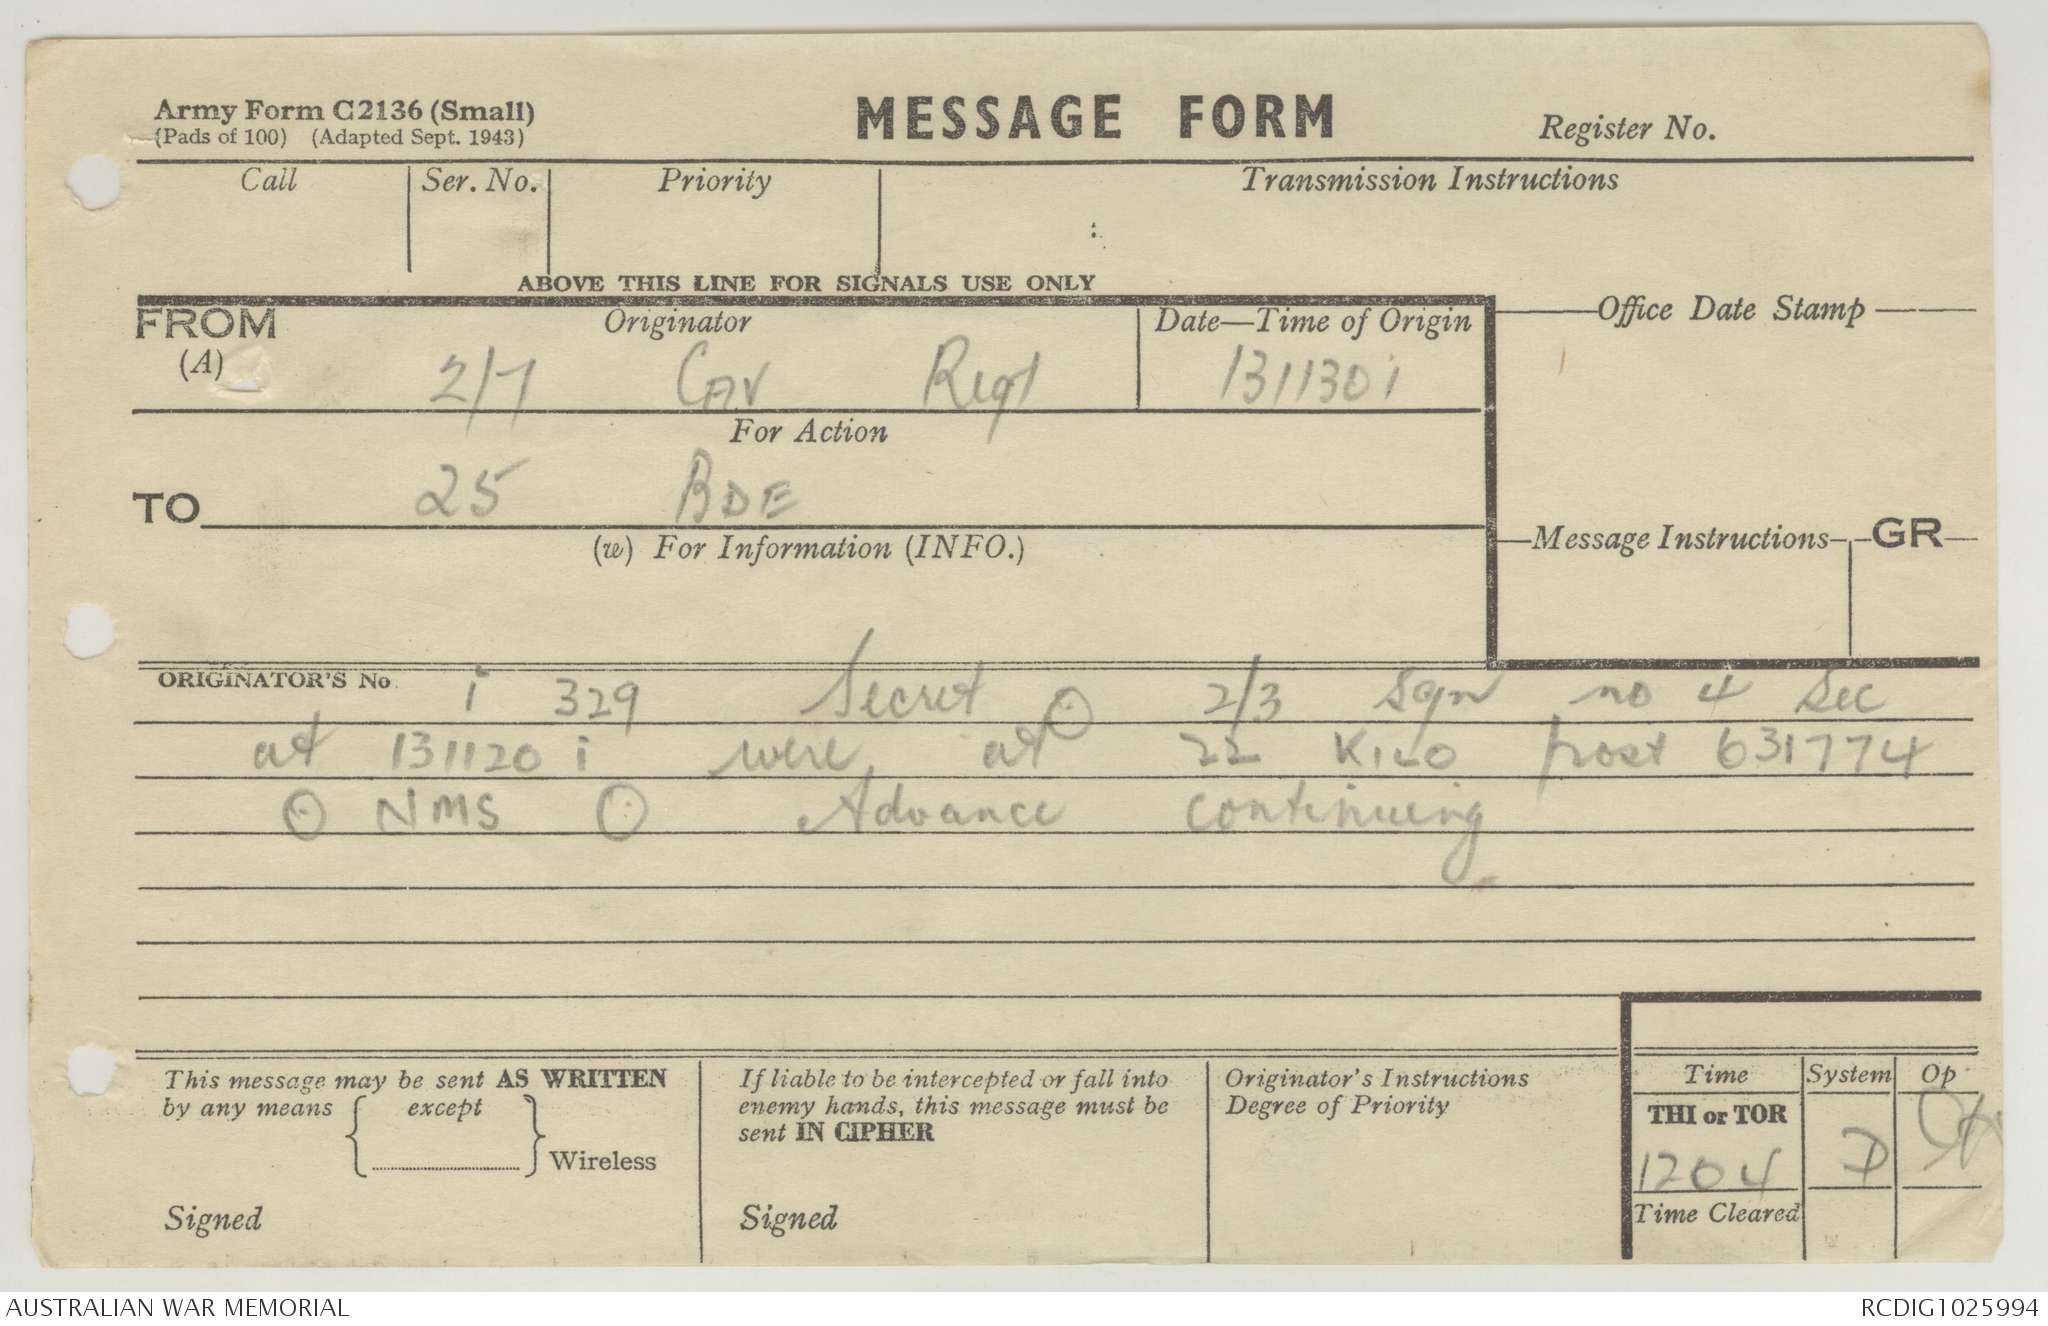 Army Form C2136 (Small)
(Pads of 100) (Adapted Sept. 1943)
MESSAGE FORM
Register No.
Call
Ser. No.
Priority
Transmission Instructions
ABOVE THIS LINE FOR SIGNALS USE ONLY
FROM
(A)
Originator
Date—Time of Origin
Office Date Stamp
2/7 CAV Regt
131130 i
For Action
TO
25 BDE
(w) For Information (INFO.)
Message Instructions
GR
ORIGINATOR'S No
i 329 Secret ⊙ 2/3 Sqn no 4 Sec
at 131120 i were at 22 KILO post 631774
⊙ NMS ⊙ Advance continuing
This message may be sent AS WRITTEN
by any means
except
Wireless
Signed
If liable to be intercepted or fall into
enemy hands, this message must be
sent IN CIPHER
Signed
Originator's Instructions
Degree of Priority
Time
System
Op
THI or TOR
1204
D
Time Cleared
AUSTRALIAN WAR MEMORIAL
RCDIG1025994